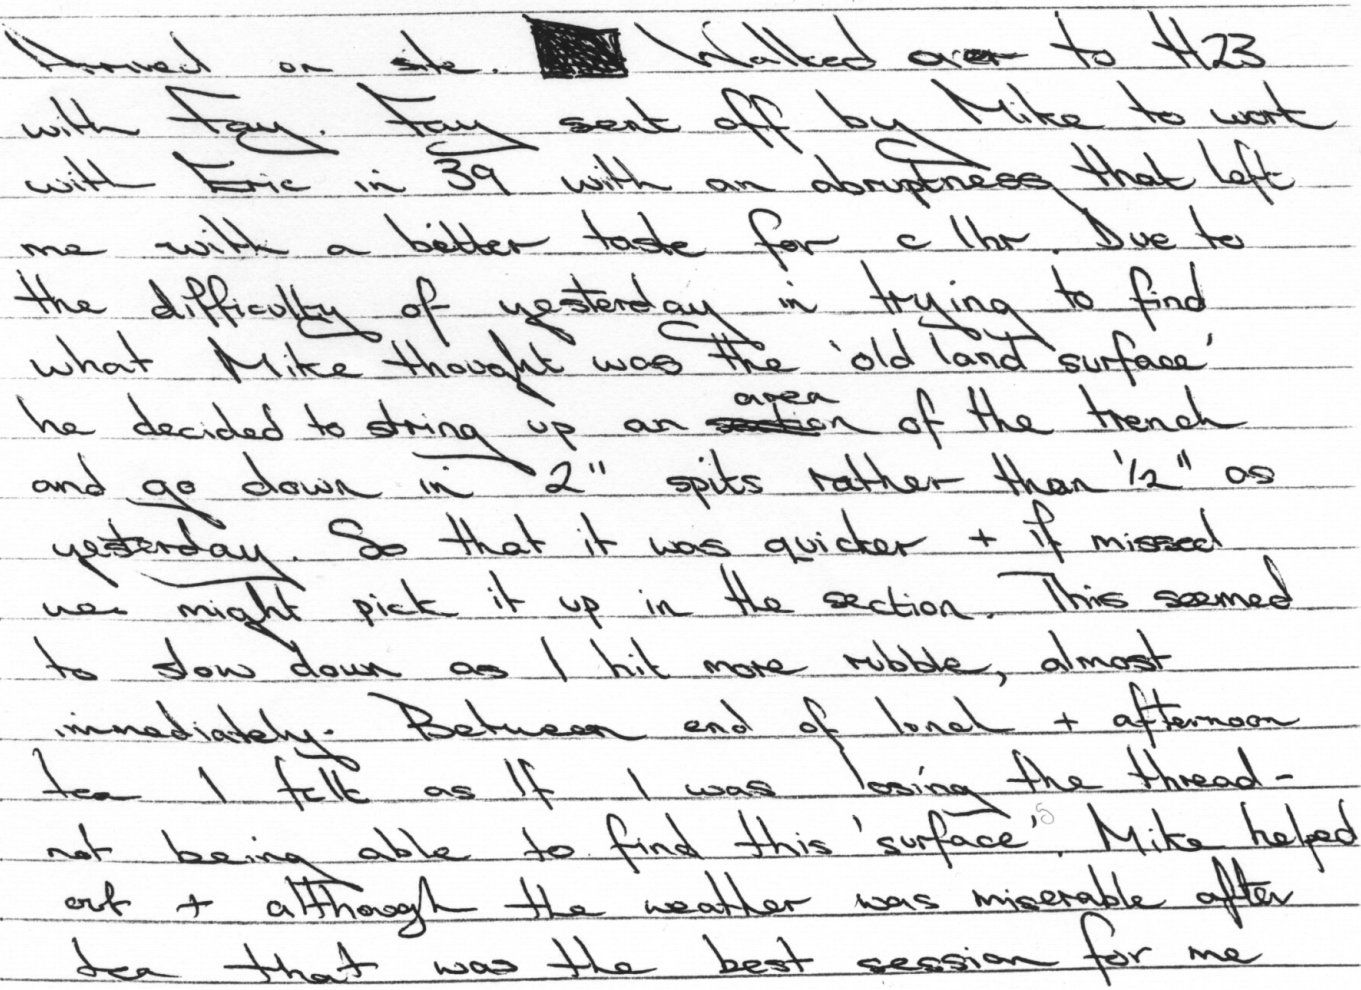 Arrived on site. Walked over to H23
with Fay. Fay sent off by Mike to work
with Eric in 39 with an abruptness that left
me with a bitter taste for c 1hr. Due to
the difficulty of yesterday in trying to find
what Mike thought was the 'old land surface'
he decided to string up an section area of the trench
and go down in 2" spits rather than 1/2" as
yesterday. So that it was quicker + if missed
we might pick it up in the section. This seemed
to slow down as I hit more rubble, almost
immediately. Between end of lunch + afternoon
tea I felt as if I was losing the thread -
not being able to find this 'surface'. Mike helped
out + although the weather was miserable after
tea that was the best session for me